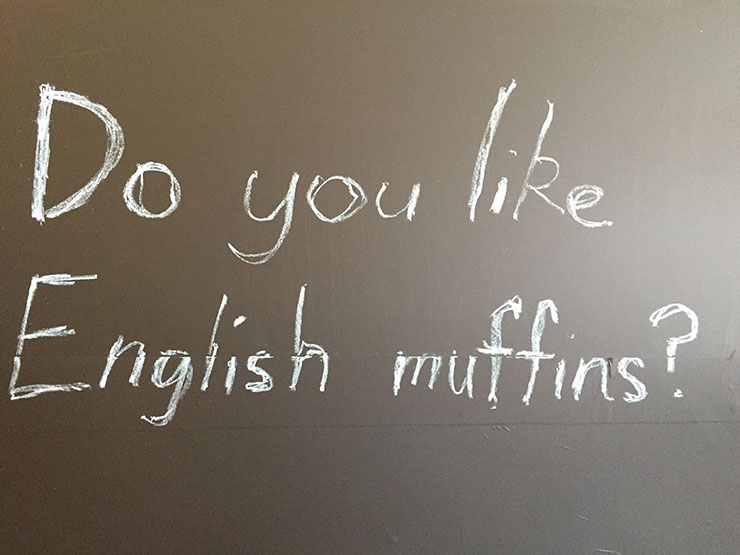 Do you like
English muffins?